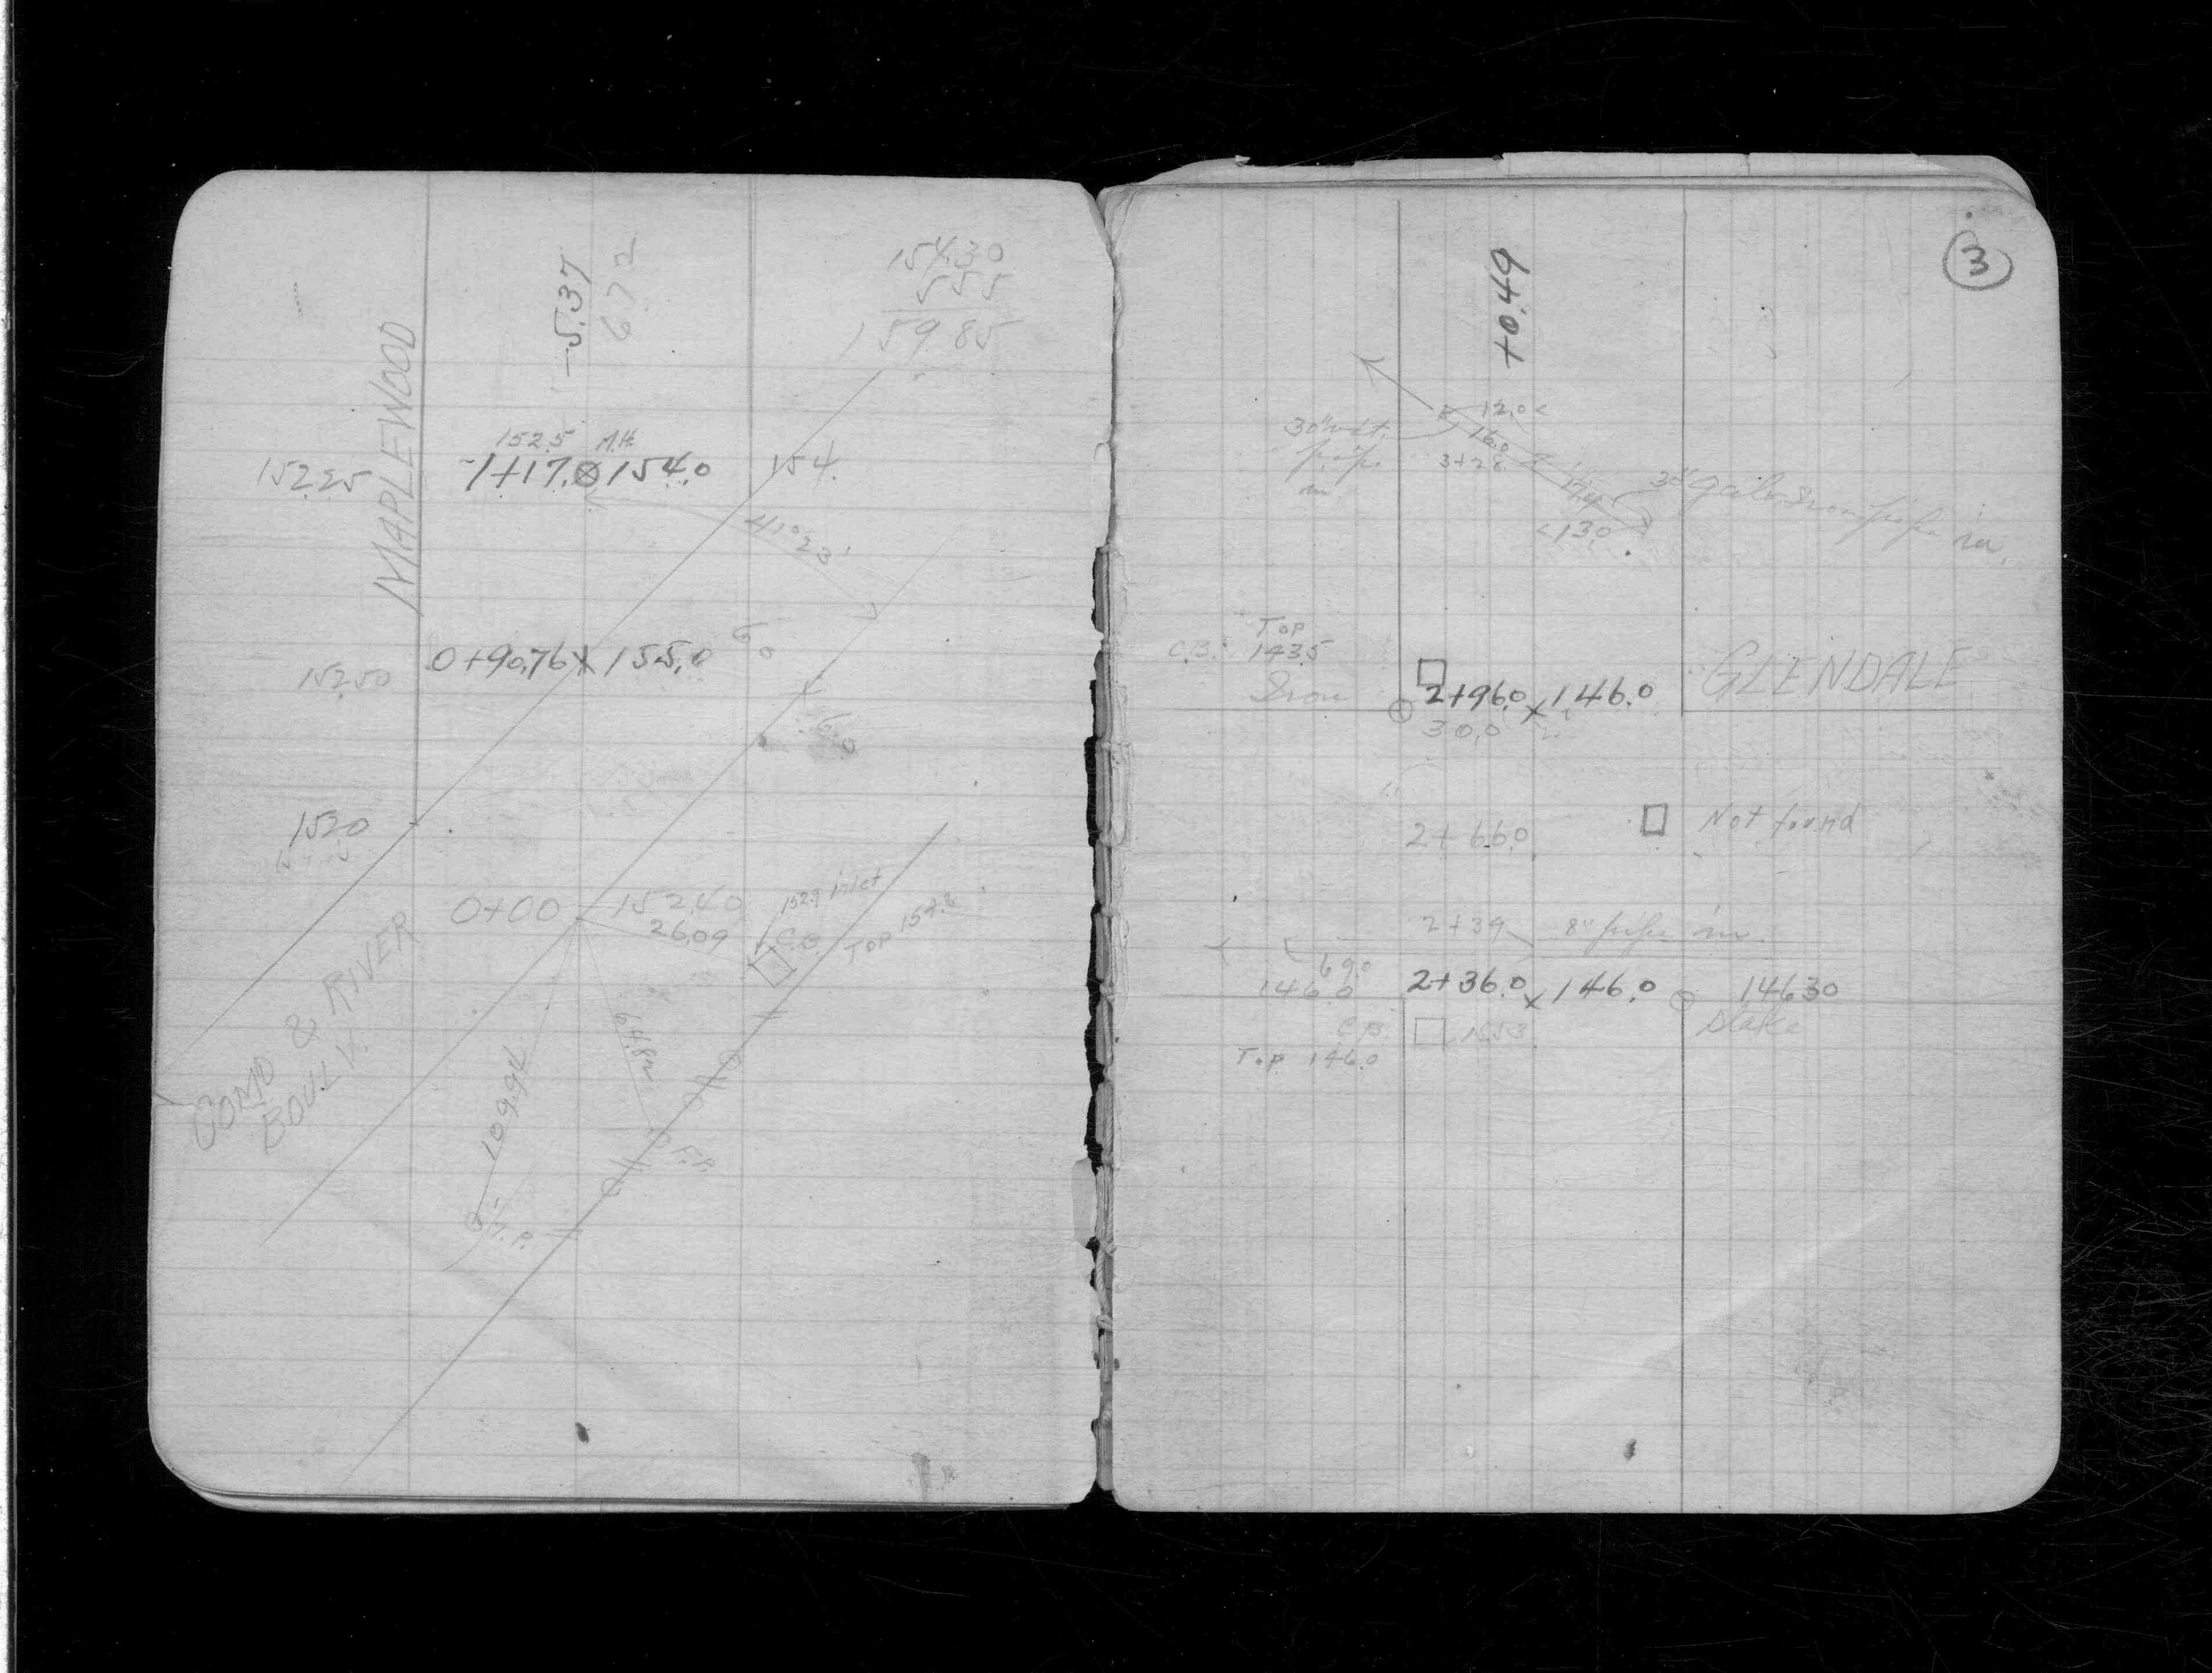 154.30
5.55
159.85
-5.37
6.72
MAPLEWOOD
152.5 M.H.
152.25
1+17.0 154.0
154.
41°23'
0+90.76 155.0
6.0
152.50
6.0
152.0
0+00 152.40
26.09
152.9 inlet
C.B.
TOP 154.8
COMO & RIVER
BOUL'V.
109.96
64.8
T.P.
3
+0.49
12.0
16.0
3+28
30"
pipe
in
17.4
<13.0
iron pipe in.
Top
C.B. 143.5
Iron
2+96.0 146.0
30.0
GLENDALE
2+66.0
Not found
2+39 8" pipe in
69.0
146.0
2+36.0 146.0
146.30
Stake
C.B.
Top 146.0